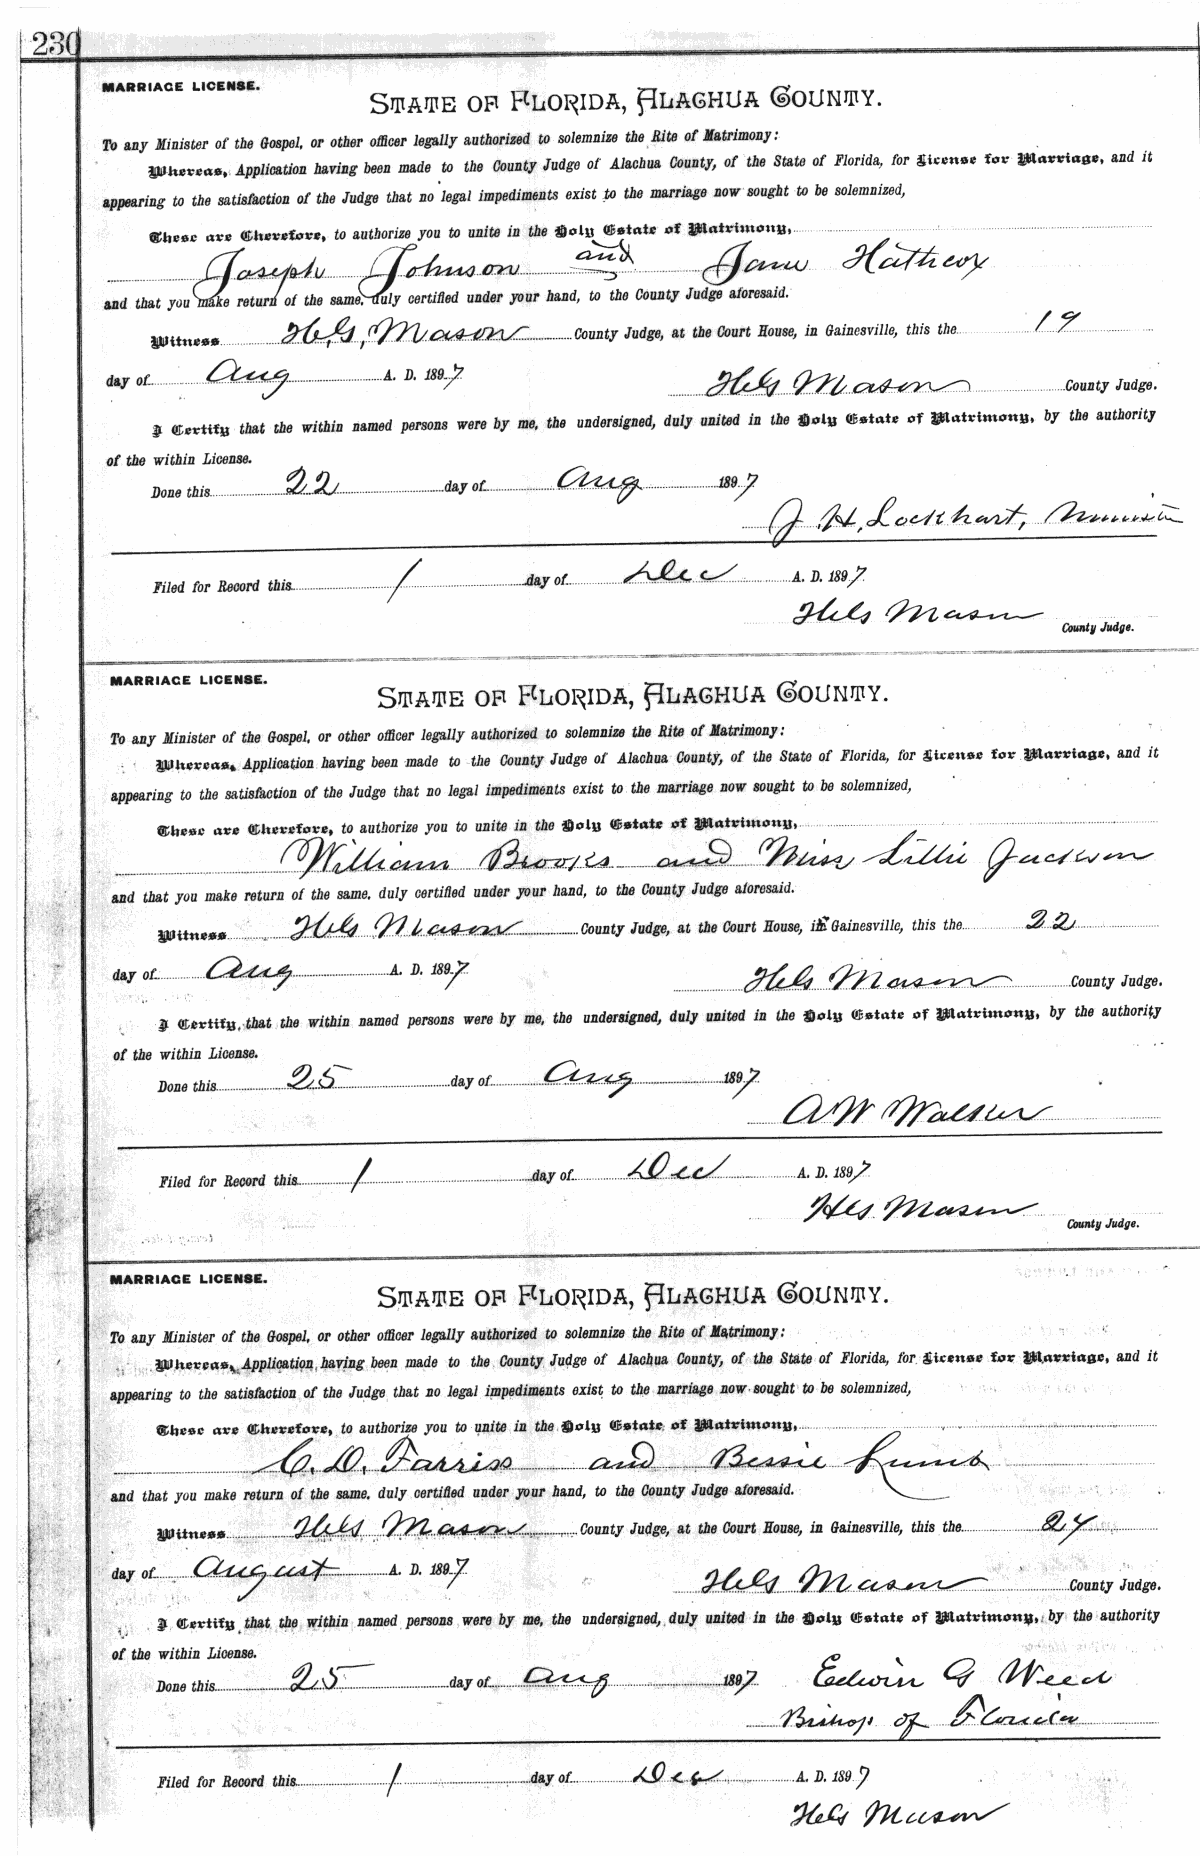 230
MARRIAGE LICENSE.
STATE OF FLORIDA, ALACHUA COUNTY.
To any Minister of the Gospel, or other officer legally authorized to solemnize the Rite of Matrimony:
Whereas, Application having been made to the County Judge of Alachua County, of the State of Florida, for License for Marriage, and it
appearing to the satisfaction of the Judge that no legal impediments exist to the marriage now sought to be solemnized,
These are Therefore, to authorize you to unite in the Holy Estate of Matrimony,
Joseph Johnson and Jane Hathcox
and that you make return of the same, duly certified under your hand, to the County Judge aforesaid.
Witness H.G. Mason County Judge, at the Court House, in Gainesville, this the 19
day of Aug A. D. 1897 HG Mason County Judge.
I Certify that the within named persons were by me, the undersigned, duly united in the Holy Estate of Matrimony, by the authority
of the within License.
Done this 22 day of Aug 1897
J. H. Lockhart, Minister
Filed for Record this 1 day of Dec A. D. 1897
HG Mason
County Judge.
MARRIAGE LICENSE.
STATE OF FLORIDA, ALACHUA COUNTY.
To any Minister of the Gospel, or other officer legally authorized to solemnize the Rite of Matrimony:
Whereas, Application having been made to the County Judge of Alachua County, of the State of Florida, for License for Marriage, and it
appearing to the satisfaction of the Judge that no legal impediments exist to the marriage now sought to be solemnized,
These are Therefore, to authorize you to unite in the Holy Estate of Matrimony,
William Brooks and Miss Lillie Jackson
and that you make return of the same, duly certified under your hand, to the County Judge aforesaid.
Witness HG Mason County Judge, at the Court House, in Gainesville, this the 22
day of Aug A. D. 1897 HG Mason County Judge.
I Certify, that the within named persons were by me, the undersigned, duly united in the Holy Estate of Matrimony, by the authority
of the within License.
Done this 25 day of Aug 1897
A W Walker
Filed for Record this 1 day of Dec A. D. 1897
HG Mason
County Judge.
MARRIAGE LICENSE.
STATE OF FLORIDA, ALACHUA COUNTY.
To any Minister of the Gospel, or other officer legally authorized to solemnize the Rite of Matrimony:
Whereas, Application having been made to the County Judge of Alachua County, of the State of Florida, for License for Marriage, and it
appearing to the satisfaction of the Judge that no legal impediments exist to the marriage now sought to be solemnized,
These are Therefore, to authorize you to unite in the Holy Estate of Matrimony,
C. D. Farriss and Bessie Lumb
and that you make return of the same, duly certified under your hand, to the County Judge aforesaid.
Witness HG Mason County Judge, at the Court House, in Gainesville, this the 24
day of August A. D. 1897 HG Mason County Judge.
I Certify that the within named persons were by me, the undersigned, duly united in the Holy Estate of Matrimony, by the authority
of the within License.
Done this 25 day of Aug 1897 Edwin G Weed
Bishop of Florida
Filed for Record this 1 day of Dec A. D. 1897
HG Mason